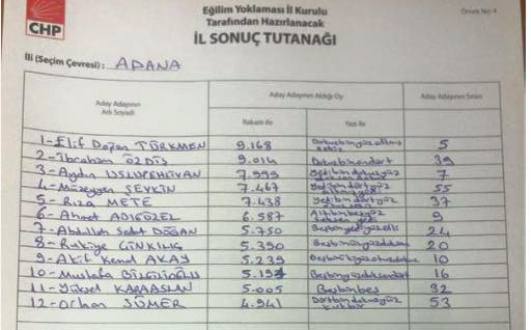 CHP
Örnek No: 4
Eğilim Yoklaması İl Kurulu
Tarafından Hazırlanacak
İL SONUÇ TUTANAĞI
İli (Seçim Çevresi) : ADANA
Aday Adayının Adı Soyadı Aday Adayının Aldığı Oy Aday Adayının Sırası
Rakam ile Yazı ile
1-Elif Doğan TÜRKMEN 9.168 5
2-İbrahim ÖZDİŞ 9.014 Dokuzbinondört 39
3-Aydın USLUPEHLİVAN 7.999 7
4-Müzeyyen ŞEVKİN 7.467 55
5-Rıza METE 7.438 37
6-Ahmet ADIGÜZEL 6.587 9
7-Abdullah Sedat DOĞAN 5.750 24
8-Rakiye 5.390 20
9-Akif Kemal AKAY 5.239 10
10-Mustafa 16
11-Yüksel KARAASLAN 5.005 Beşbinbeş 32
12-Orhan SÜMER 4.941 53